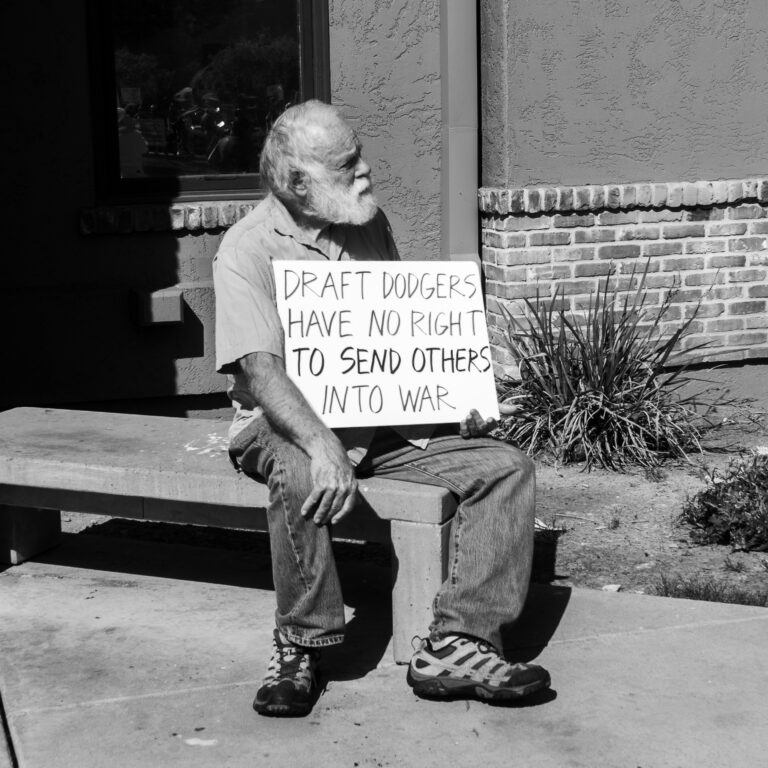 DRAFT DODGERS
HAVE NO RIGHT
TO SEND OTHERS
INTO WAR